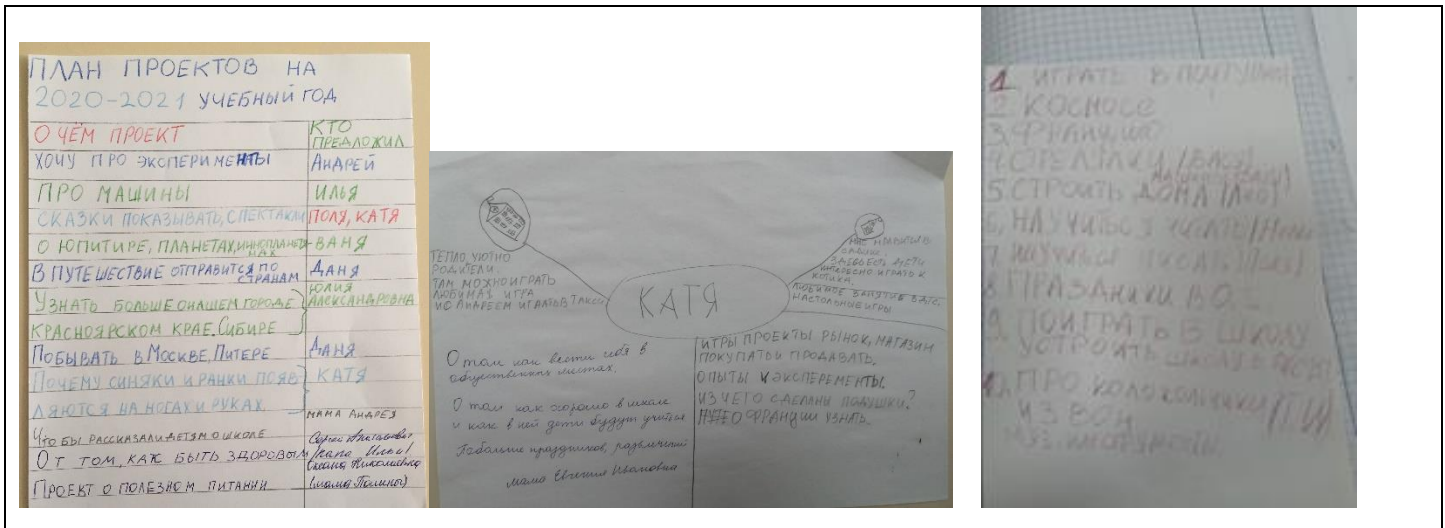 ПЛАН ПРОЕКТОВ НА
2020-2021 УЧЕБНЫЙ ГОД
О ЧЁМ ПРОЕКТ
КТО ПРЕДЛОЖИЛ
ХОЧУ ПРО ЭКСПЕРИМЕНТЫ АНДРЕЙ
ПРО МАШИНЫ ИЛЬЯ
СКАЗКИ ПОКАЗЫВАТЬ, СПЕКТАКЛИ ПОЛЯ, КАТЯ
О ЮПИТИРЕ, ПЛАНЕТАХ, ИННОПЛАНЕТЯНАХ ВАНЯ
В ПУТЕШЕСТВИЕ ОТПРАВИТСЯ ПО СТРАНАМ ДАНЯ
УЗНАТЬ БОЛЬШЕ О НАШЕМ ГОРОДЕ ЮЛИЯ АЛЕКСАНДРОВНА
КРАСНОЯРСКОМ КРАЕ. СИБИРЕ
ПОБЫВАТЬ В МОСКВЕ, ПИТЕРЕ ДАНЯ
ПОЧЕМУ СИНЯКИ И РАНКИ ПОЯВ КАТЯ
ЛЯЮТСЯ НА НОГАХ И РУКАХ
МАМА АНДРЕЯ
ЧТО БЫ РАССКАЗАЛИ ДЕТЯМ О ШКОЛЕ
ОТ ТОМ, КАК БЫТЬ ЗДОРОВЫМ (папа Ильи)
Оксана Николаевна
ПРОЕКТ О ПОЛЕЗНОМ ПИТАНИИ (мама Полины)
ТЕПЛО, УЮТНО
РОДИТЕЛИ.
ТАМ МОЖНО ИГРАТЬ
ЛЮБИМАЯ ИГРА
С АНДРЕЕМ ИГРАТЬ В ТАКСИ
КАТЯ
НАС
ИНТЕРЕСНО ИГРАТЬ К
КОТИКА
ЛЮБИМОЕ ЗАНЯТИЕ
НАСТОЛЬНЫЕ ИГРЫ
О том как вести себя в
общественных местах.
О том как хорошо в школе
и как в ней дети будут учиться
Побольше праздников, развлечений
мама Евгения Ивановна
ИГРЫ ПРОЕКТЫ РЫНОК, МАГАЗИН
ПОКУПАТЬ И ПРОДАВАТЬ.
ОПЫТЫ И ЭКСПЕРЕМЕНТЫ.
ИЗ ЧЕГО СДЕЛАНЫ ПОДУШКИ?
О ФРАНЦИИ УЗНАТЬ.
1. ИГРАТЬ В
2. КОСМОСЕ
3. ФРАНЦИЮ
4.
5. СТРОИТЬ ДОМА (ЛЕО)
6. НАУЧИТЬСЯ ЧИТАТЬ
7.
8. ПРАЗДНИКИ
9. ПОИГРАТЬ В ШКОЛУ
УСТРОИТЬ ШКОЛУ
10. ПРО КОЛОКОЛЬЧИКИ